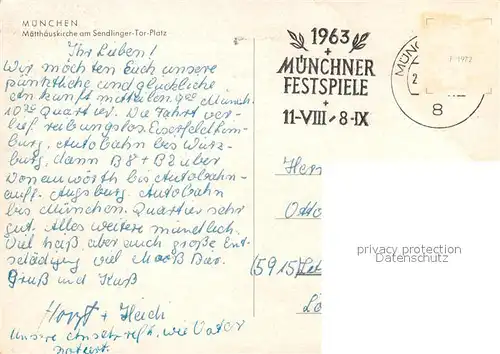 MÜNCHEN
Matthäuskirche am Sendlinger-Tor-Platz
Ihr Lieben!
Wir möchten Euch unsere
pünktliche und glückliche
Ankunft mitteilen. 9oo Münch.
10 Quartier. Die Fahrt ver-
lief reibungslos. Eiserfeld
burg. Autobahn bis Würz-
burg, dann B8 + B2 über
Donauwörth bis Autobahn-
auff. Augsburg. Autobahn
bis München. Quartier sehr
gut. Alles weitere mündlich.
Viel naß, aber auch große Ent-
schädigung viel Maaß Bier.
Gruß und Kuß
Horst + Heidi
unsere wie Vater
1963
+
MÜNCHNER
FESTSPIELE
+
11-VIII - 8-IX
8
Otto
(5915)
privacy protection
Datenschutz